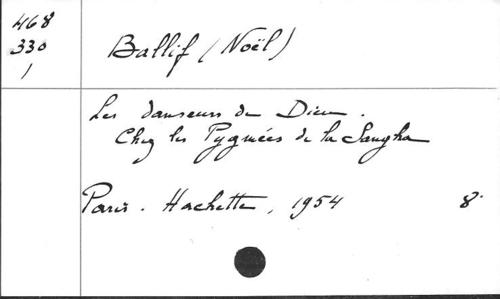 468
330
1
Ballif (Noël)
Les danseurs de Dieu.
Chez les Pygmées de la Sangha
Paris. Hachette, 1954 8°